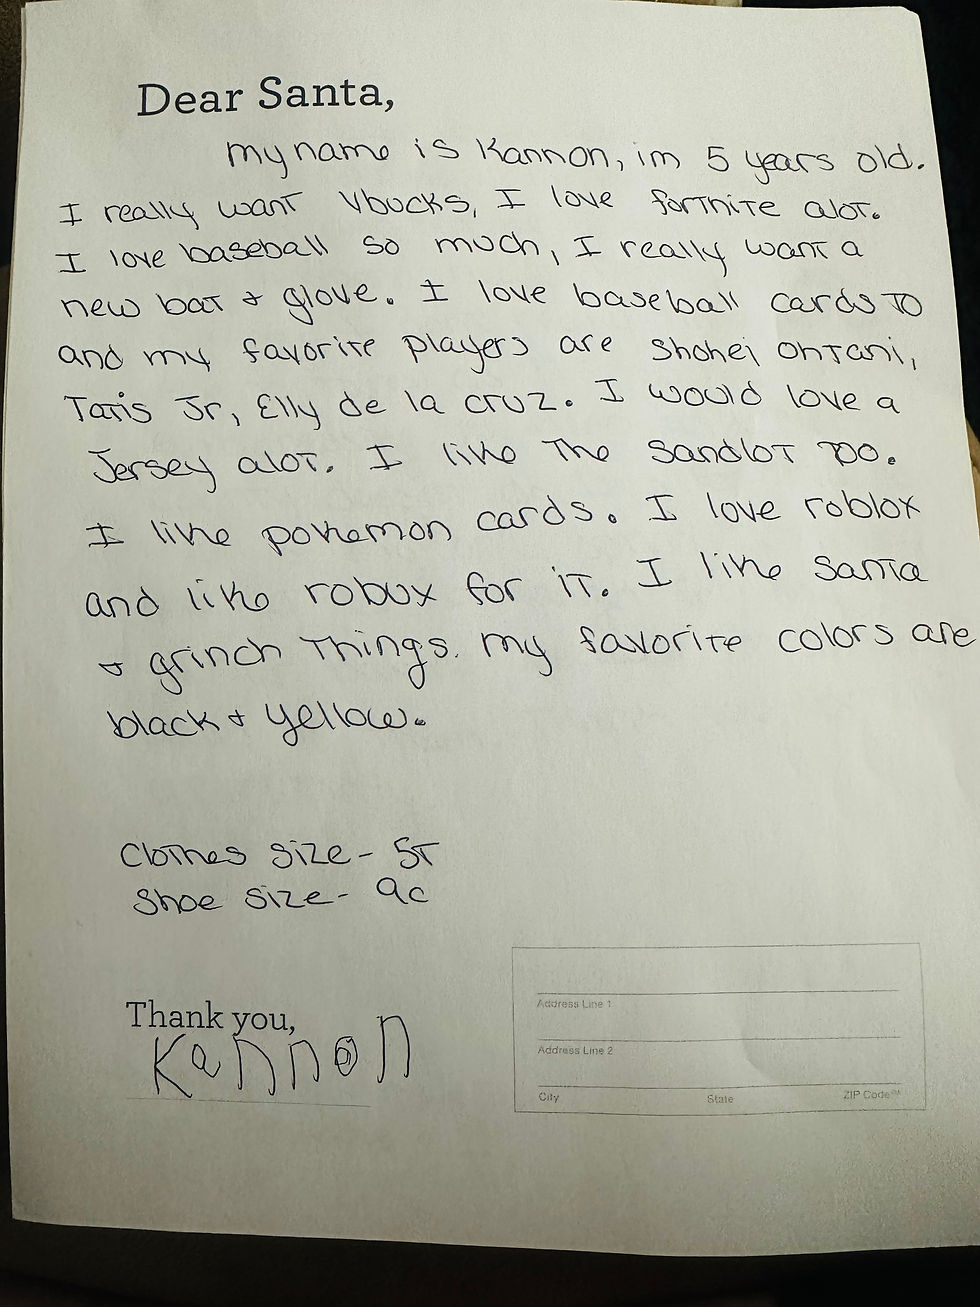 Dear Santa,
my name is Kannon, im 5 years old.
I really want Vbucks, I love fortnite alot.
I love baseball so much, I really want a
new bat & glove. I love baseball cards to
and my favorite players are Shohei Ohtani,
Tatis Jr, Elly de la cruz. I would love a
Jersey alot. I like the Sandlot too.
I like pokemon cards. I love roblox
and like robux for it. I like Santa
& grinch things. my favorite colors are
black & yellow.
Clothes size - 5T
Shoe size - 9c
Thank you,
Kannon
Address Line 1
Address Line 2
City State ZIP Code℠